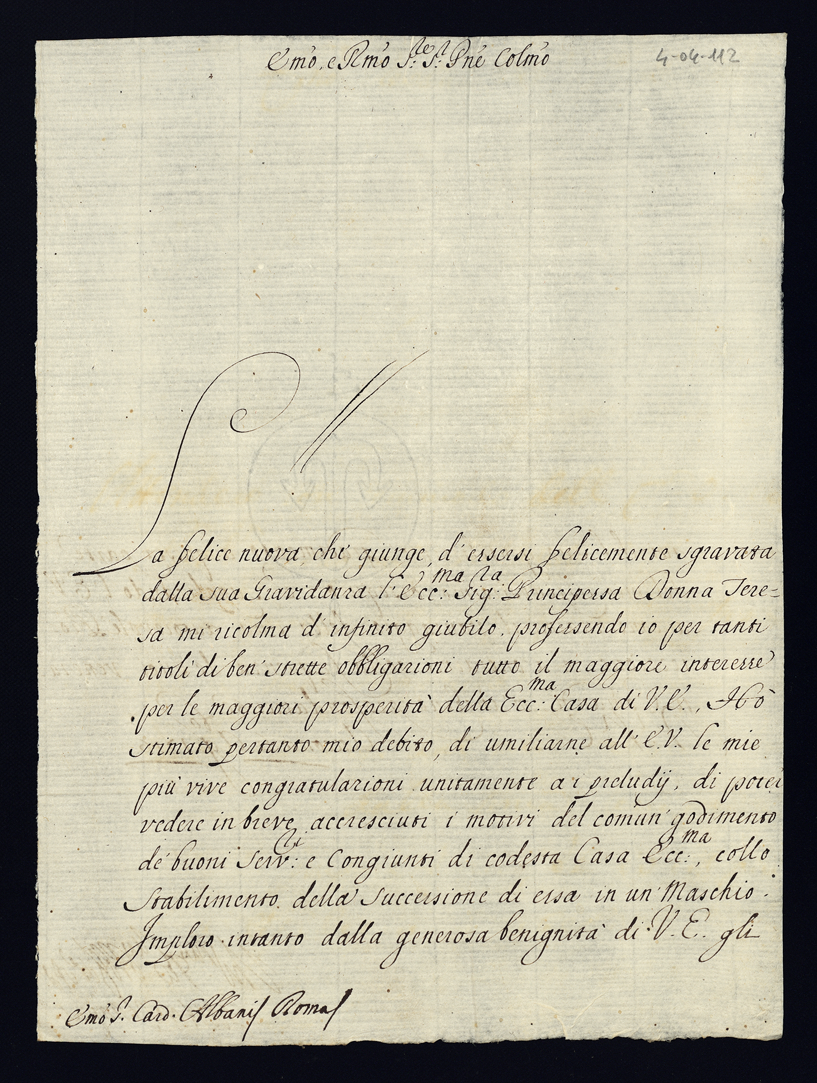 Emo, e Rmo Sr. Sr. Pne Colmo
4-04-112
La felice nuova, che giunge, d'essersi felicemente sgravata
dalla sua Gravidanza l'Ecc:ma Sig:ra Principessa Donna Tere=
sa mi ricolma d'infinito giubilo, professendo io per tanti
titoli di ben' strette obbligazioni tutto il maggiore interesse
per le maggiori prosperità della Ecc:ma Casa di V.E., Hò
stimato pertanto mio debito, di umiliarne all' E.V. le mie
più vive congratulazioni unitamente a i preludij, di poter
vedere in breve, accresciuti i motivi del comun' godimento
de' buoni Serv:ri e Congiunti di codesta Casa Ecc:ma, collo
Stabilimento della successione di essa in un' Maschio.
Imploro intanto dalla generosa benignità di V.E. gli
Emo S. Card. Albani Roma